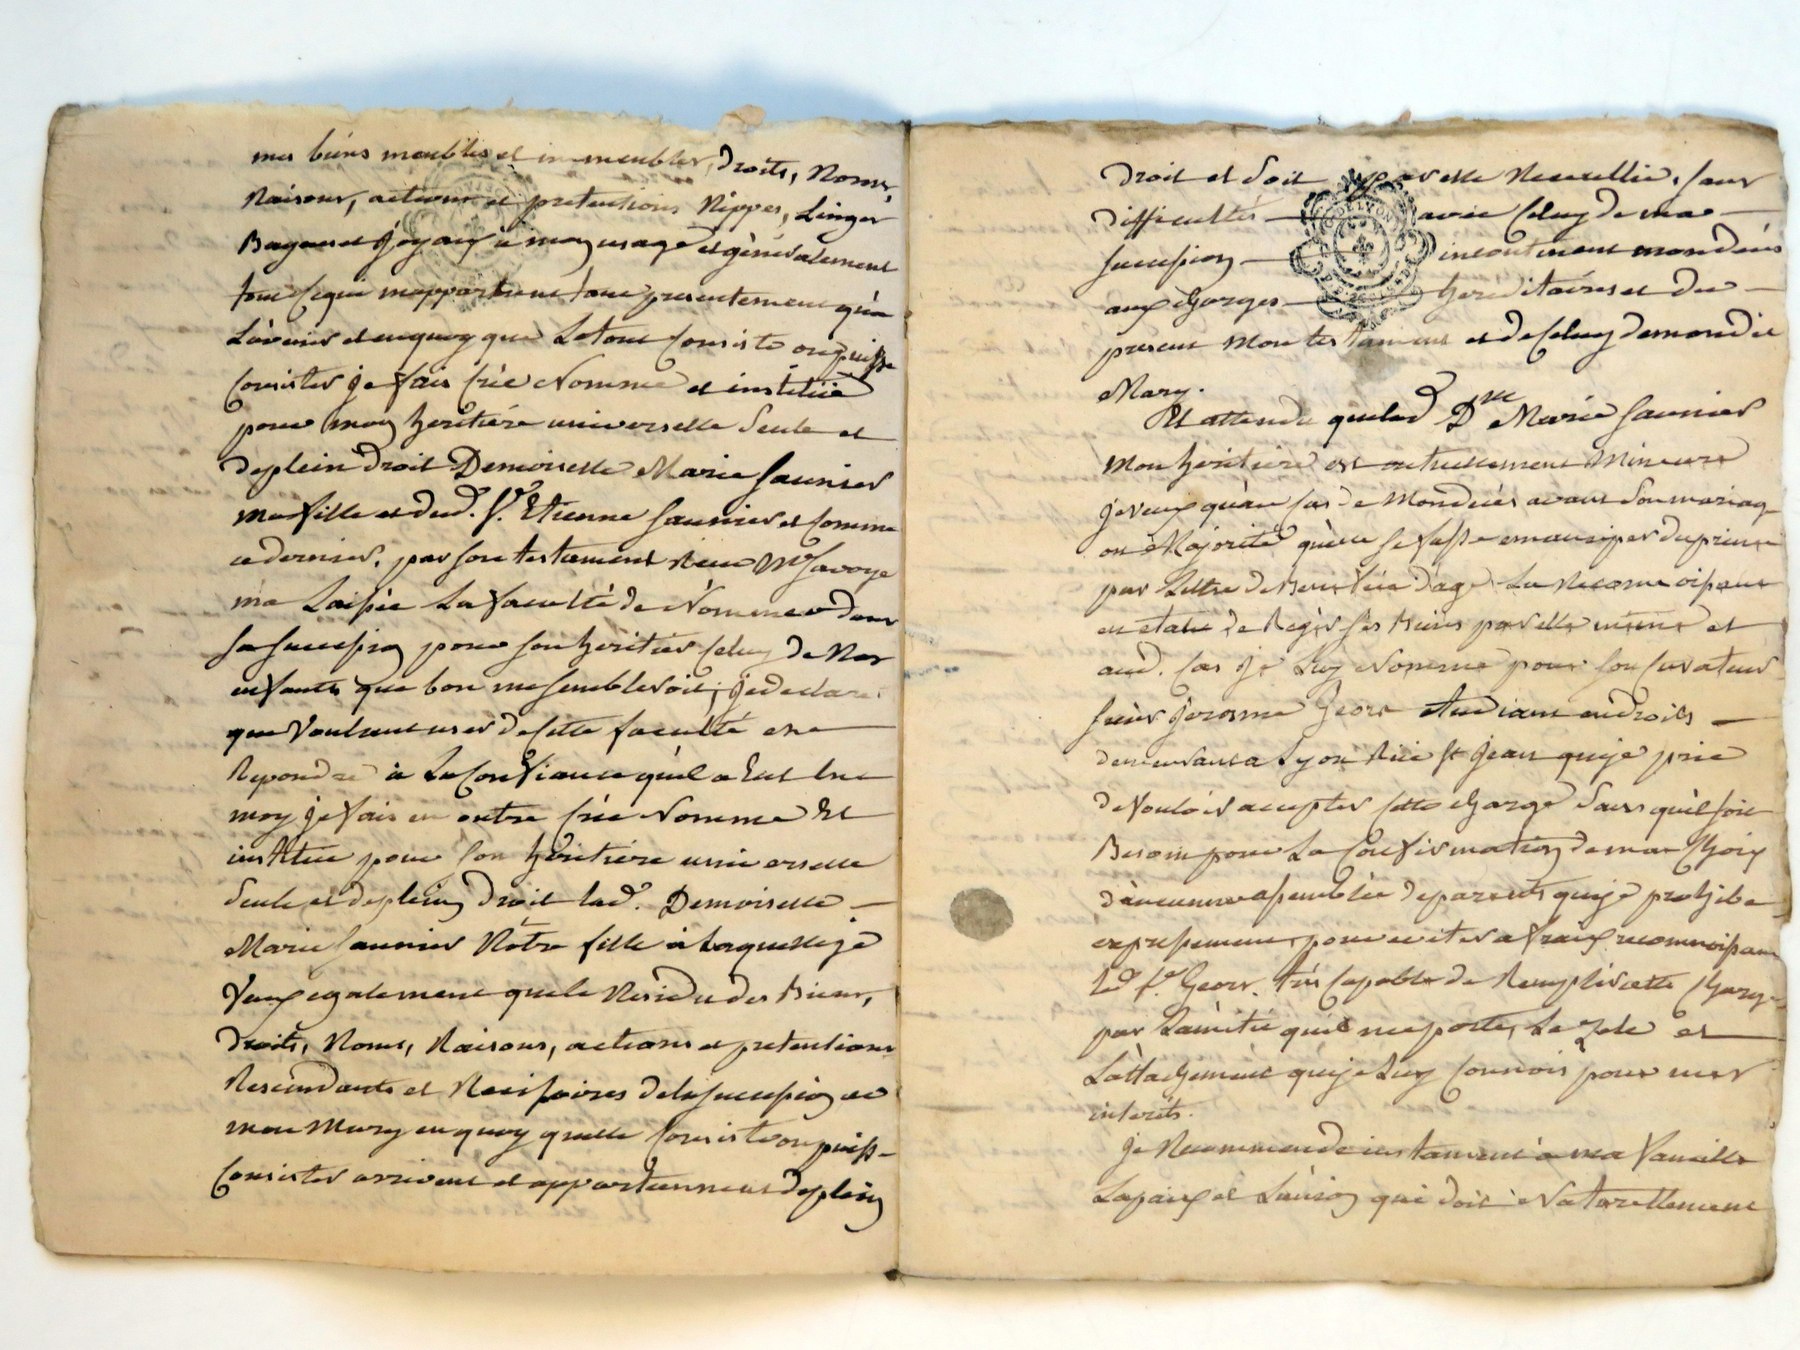 mes biens meubles et immeubles, Droits, Noms,
Raisons, actions et pretentions Nippes, Linges
Bagues et Joyaux à mon usage et généralement
tout ce qui m'appartient tant presentement qu'à
L'avenir et en quoy que Le tout Consiste ou puisse
Consister je fais crée Nomme et institüe
pour mon héritiére universelle Seule et
de plein Droit Demoiselle Marie Saunier
ma fille et dud. Sr. Etienne Saunier et Comme
ce dernier, par son testament Receu Me Savoye
m'a Laissée La faculté de Nommer dans
sa Succession pour son héritier Celuy de Nos
enfants que bon me sembleroit, je declare
que Voulant user de Cette faculté et
Repondre à La Confiance qu'il a Eut en
moy je fais en outre crée Nomme Et
institüe pour son héritiére universelle
Seule et de plein Droit lad. Demoiselle
Marie Saunier Nôtre fille à Laquelle je
Veux egalement que le Residu des Biens,
Droits, Noms, Raisons, actions et pretentions
Rescindants et Rescisoires de la Succession de
mon Mary en quoy qu'elle Consiste ou puisse
Consister arrivent et appartiennent de plein
Droit et Soit par elle Recueillie, sans
difficultés avec Celuy de ma
Succession incontinent mon décés
aux Charges héréditaires et du
present Mon testament et de Celuy de mondit
Mary.
Et attendu que lad. Dlle Marie Saunier
Mon héritiére est actuellement Mineure
je veux qu'au Cas de Mon decés avant Son mariage
ou Majorité qu'elle se fasse emanciper du prince
par Lettre de Benefice d'age La Reconnoissant
en etat de Regir ses Biens par elle même et
aud. Cas je Luy Nomme pour son Curateur
Sieur Jerosme Geors etudiant en droits
demeurant a Lyon Rüe St Jean que je prie
de Vouloir accepter Cette Charge Sans qu'il soit
Besoin pour La Confirmation de mon Choix
d'aucunne assemblée de parents que je prohibe
expressement, pour eviter a fraix reconnoissant
led. Sr. Geors. très Capable de Remplir cette Charge
par L'amitié qu'il me porte, Le Zele et
L'attachement que je Luy Connois pour mes
interêts.
je Recommande instamment à ma famille
La paix et L'union qui doit Naturellement
DE LYON